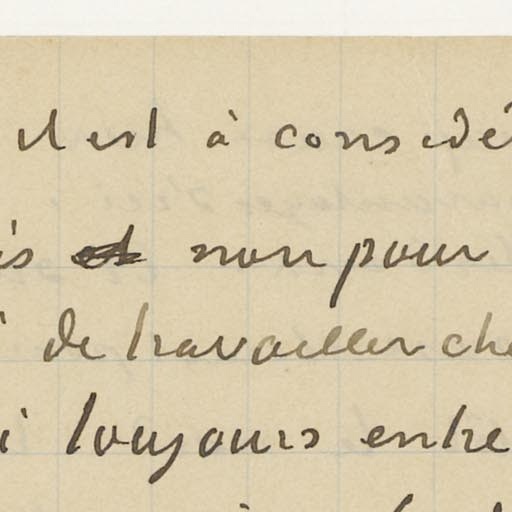 il est à considé
is et non pour
i de travailler che
i toujours entre